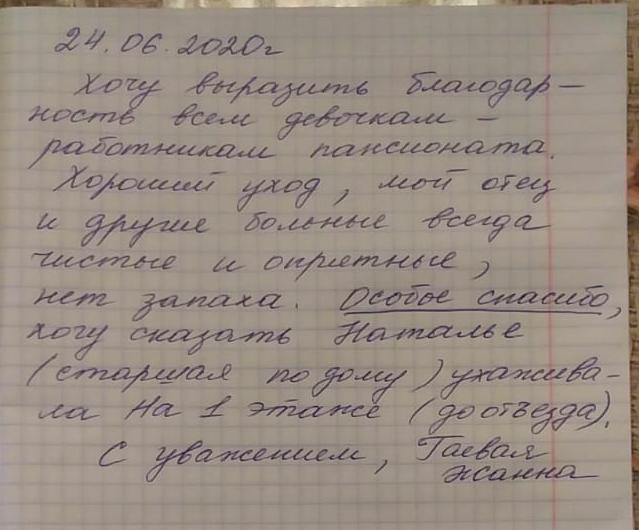 24.06.2020г
Хочу выразить благодар-
ность всем девочкам -
работникам пансионата.
Хороший уход, мой отец
и другие больные всегда
чистые и опрятные,
нет запаха. Особое спасибо,
хочу сказать Наталье
(старшая по дому) ухажива-
ла на 1 этаже (до отъезда).
С уважением, Гаевая
Жанна